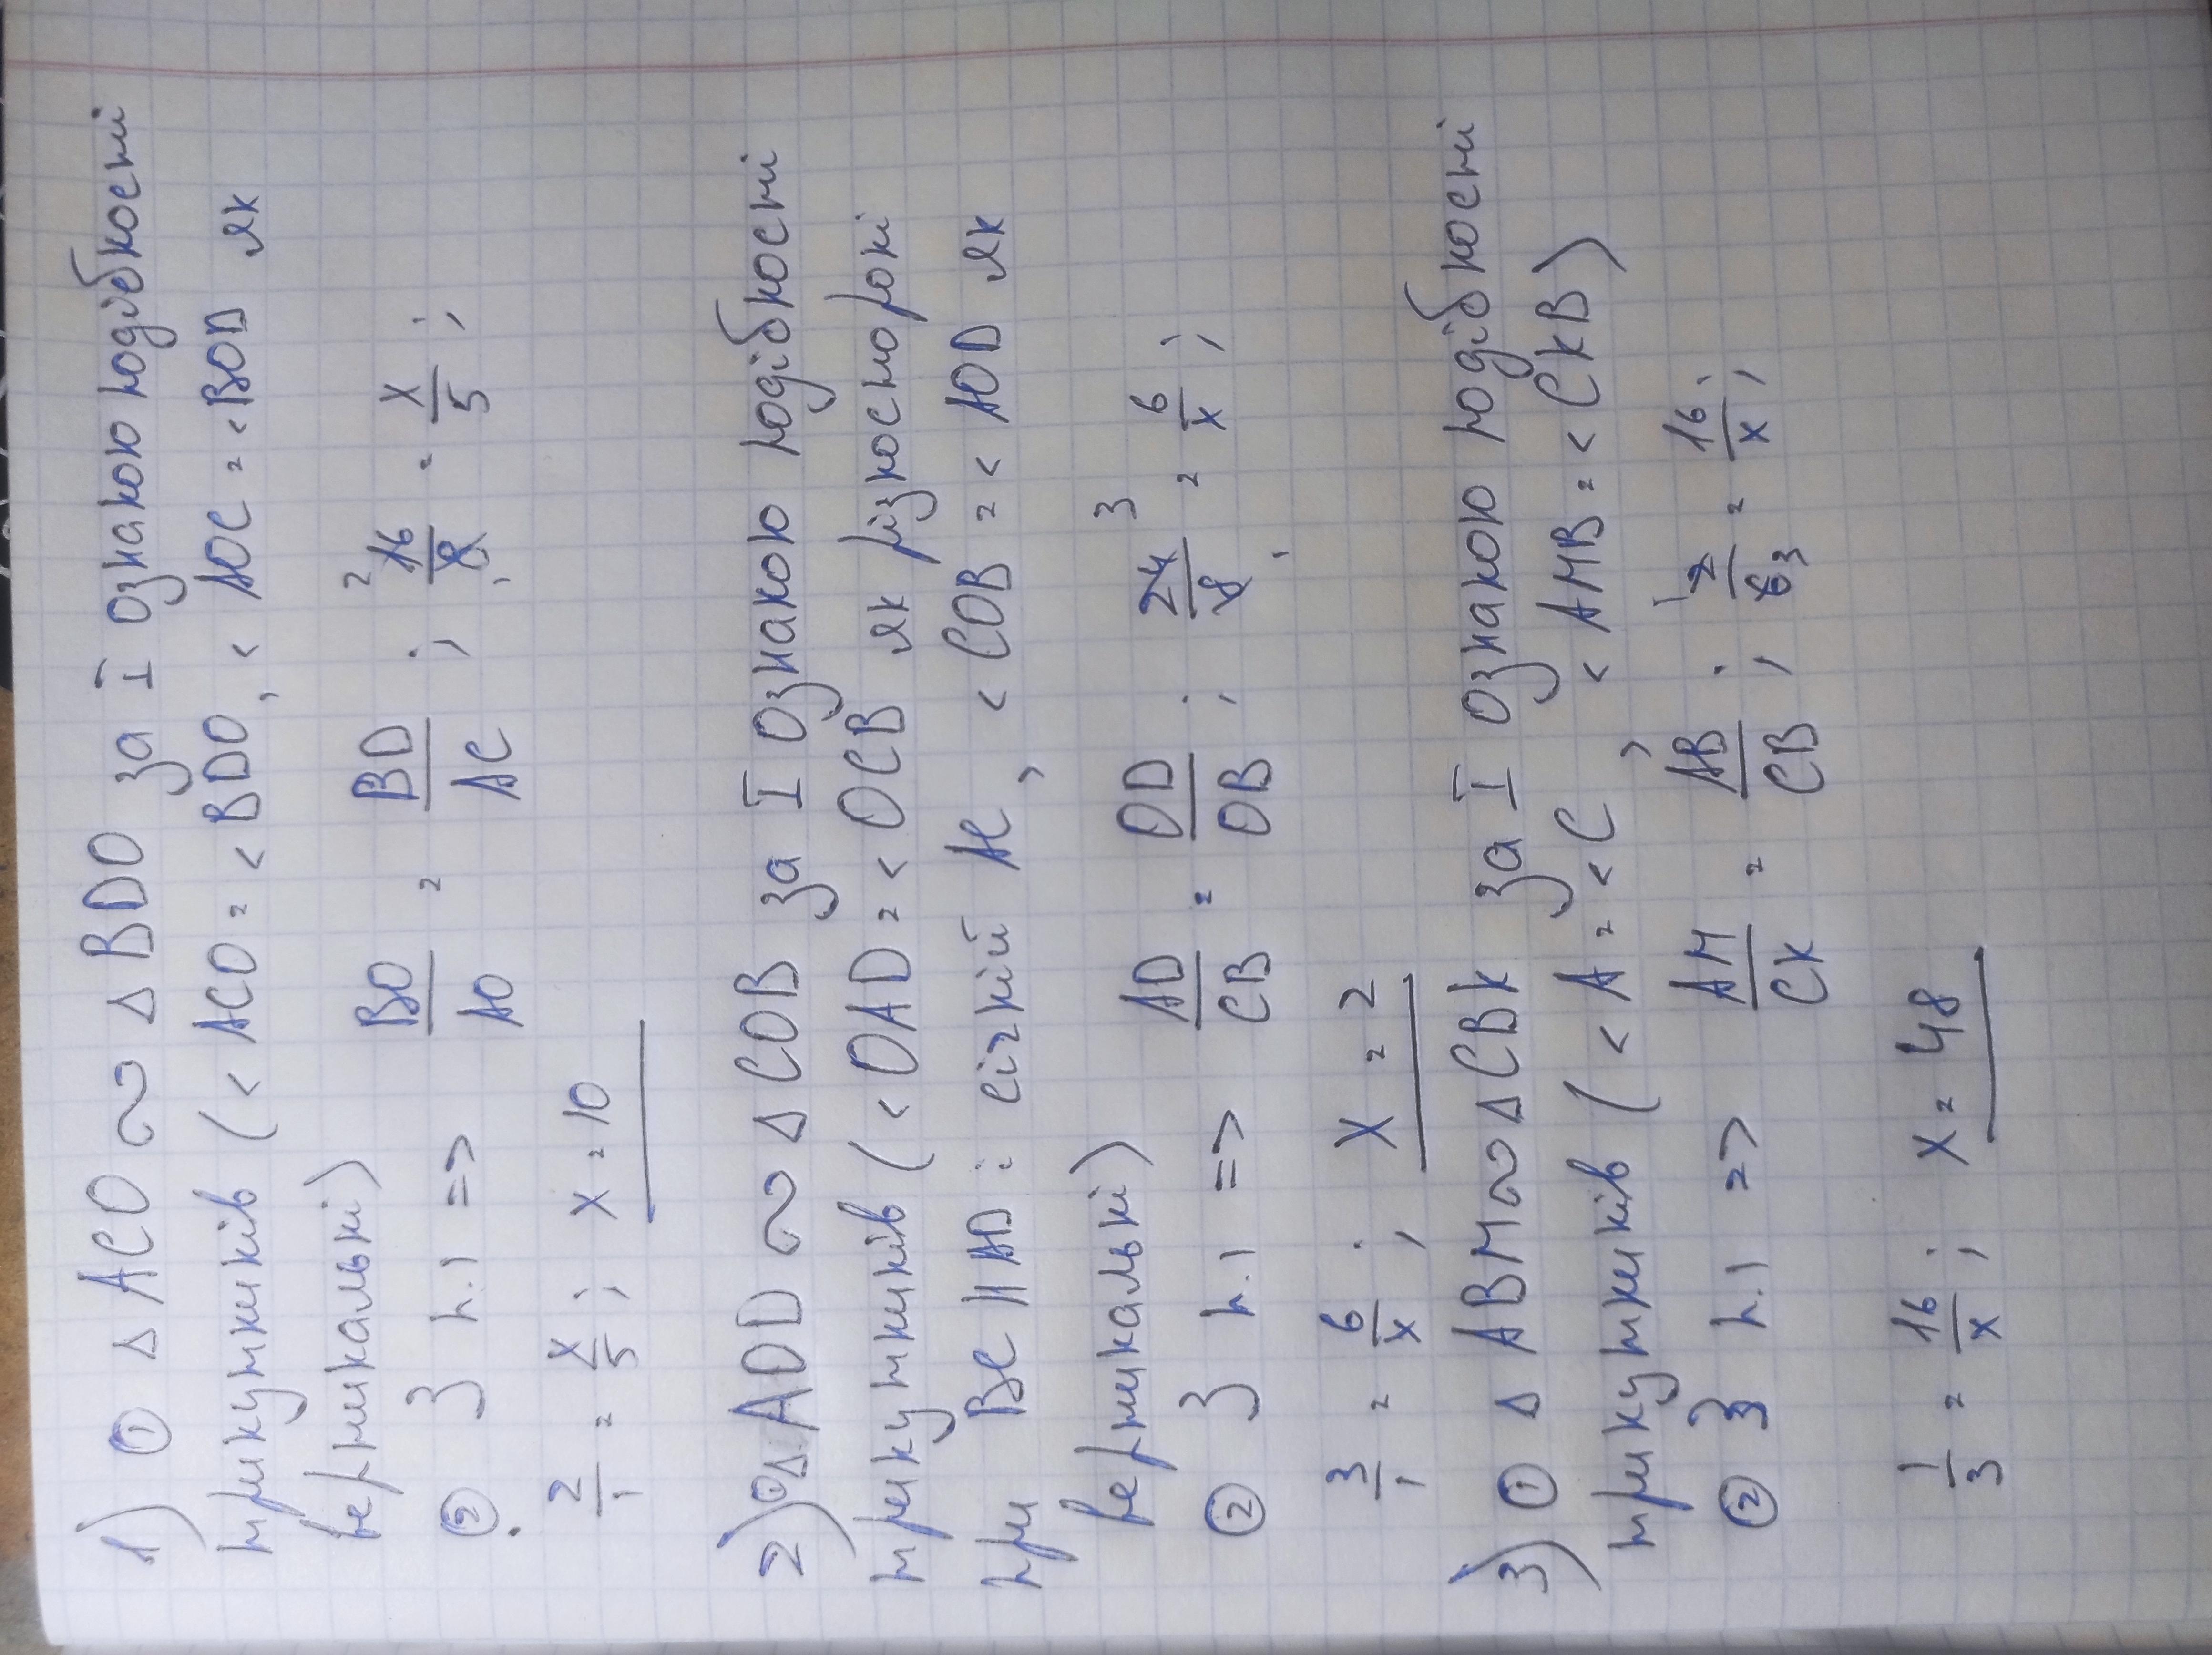 1) ① Δ ACO ∾ Δ BDO за I ознакою подібності
трикутників (< ACO = < BDO, < AOC = < BOD як
вертикальні)
② З п.1 => BO/AO = BD/AC ; 16/8 2 = x/5 ;
2/1 = x/5 ; x = 10
2) ① Δ AOD ∾ Δ COB за I ознакою подібності
трикутників (< OAD = < OCB як різносторонні
при BC || AD і січній AC, < COB = < AOD як
вертикальні)
② З п.1 => AD/CB = OD/OB ; 24/8 3 1 = 6/x ;
3/1 = 6/x ; x = 2
3) ① Δ ABM ∾ Δ CBK за I ознакою подібності
трикутників (< A = < C, < AMB = < CKB)
② З п.1 => AM/CK = AB/CB ; 1 2/6 3 = 16/x ;
1/3 = 16/x ; x = 48